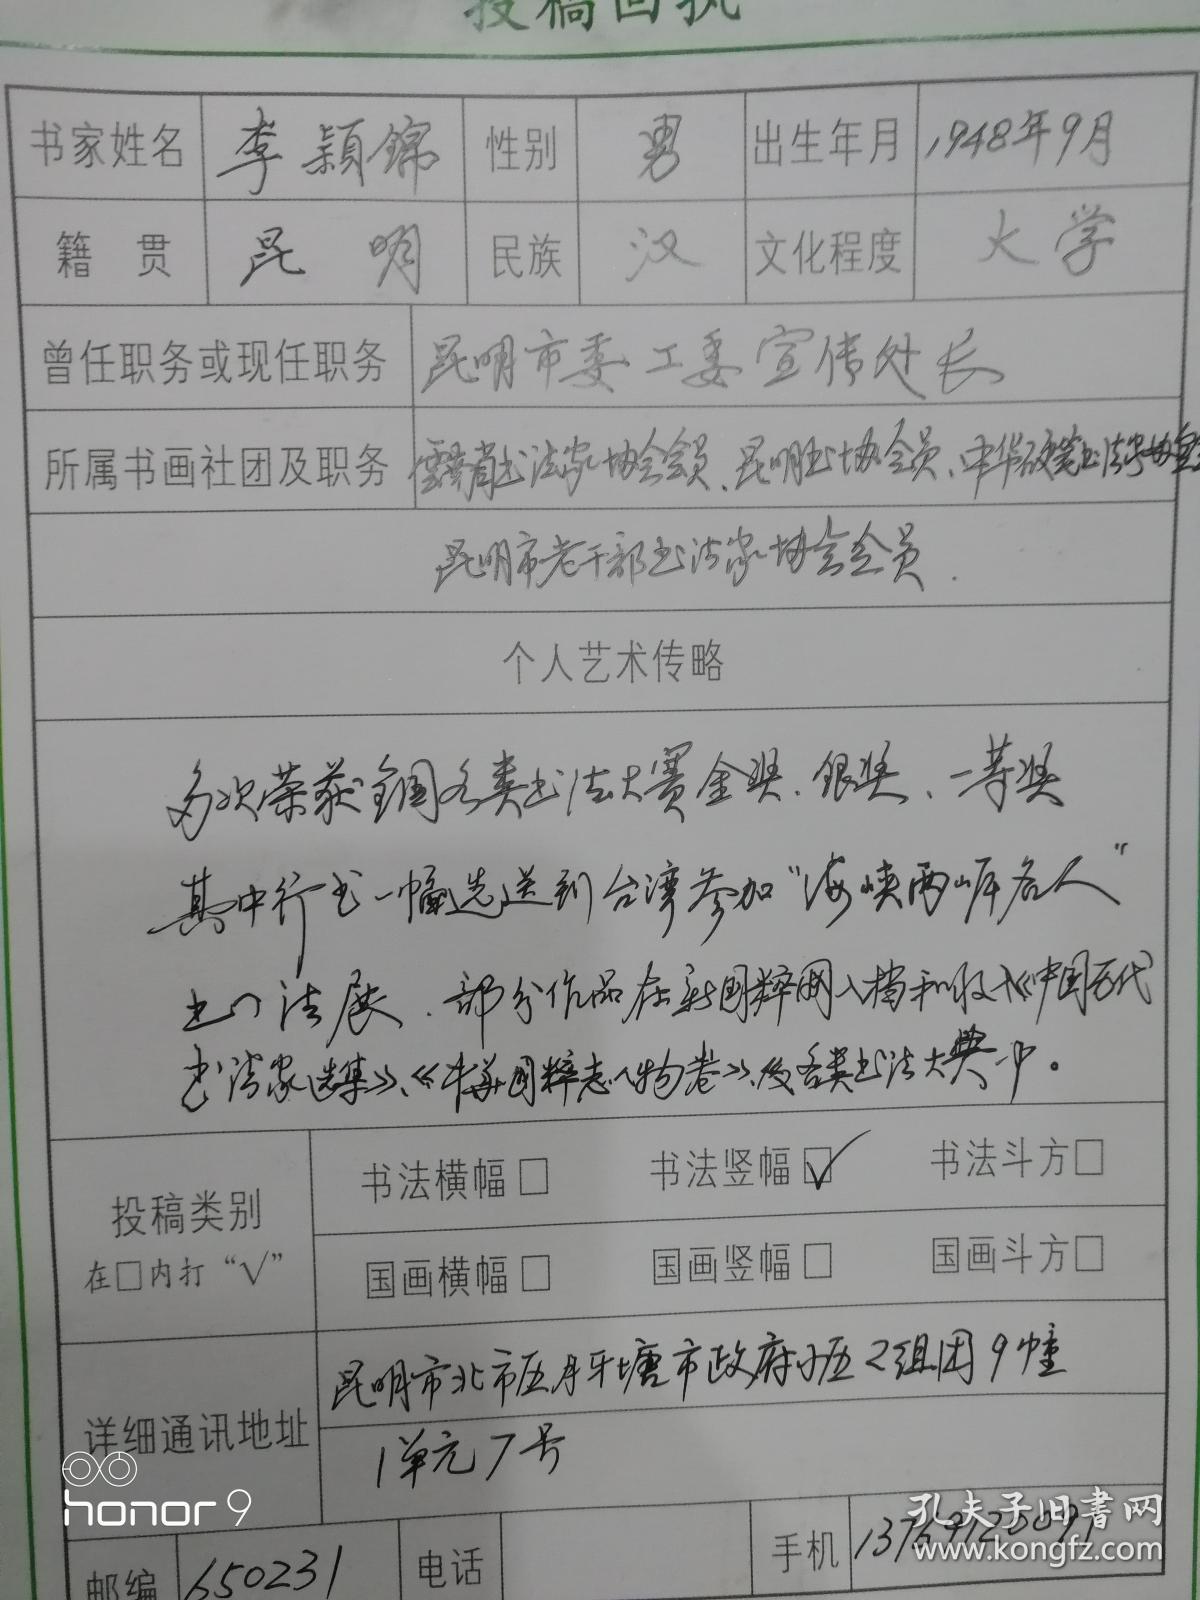 投稿回执
书家姓名 李颖锦 性别 男 出生年月 1948年9月
籍贯 昆明 民族 汉 文化程度 大学
曾任职务或现任职务 昆明市委工委宣传处长
所属书画社团及职务 云南省书法家协会会员、昆明书协会员、中华硬笔书法家协会
昆明市老干部书法家协会会员.
个人艺术传略
多次荣获全国各类书法大赛金奖、银奖、一等奖
其中行书一幅选送到台湾参加“海峡两岸名人”
书法展、部分作品在新国粹网入档和收入《中国百代
书法家选集》、《中华国粹志人物卷》、及各类书法大典中。
投稿类别 书法横幅□ 书法竖幅☑ 书法斗方□
在□内打“√” 国画横幅□ 国画竖幅□ 国画斗方□
详细通讯地址 昆明市北市区月牙塘市政府小区2组团9幢
1单元7号
邮编 650231 电话 手机
honor 9
孔夫子旧書网
www.kongfz.com